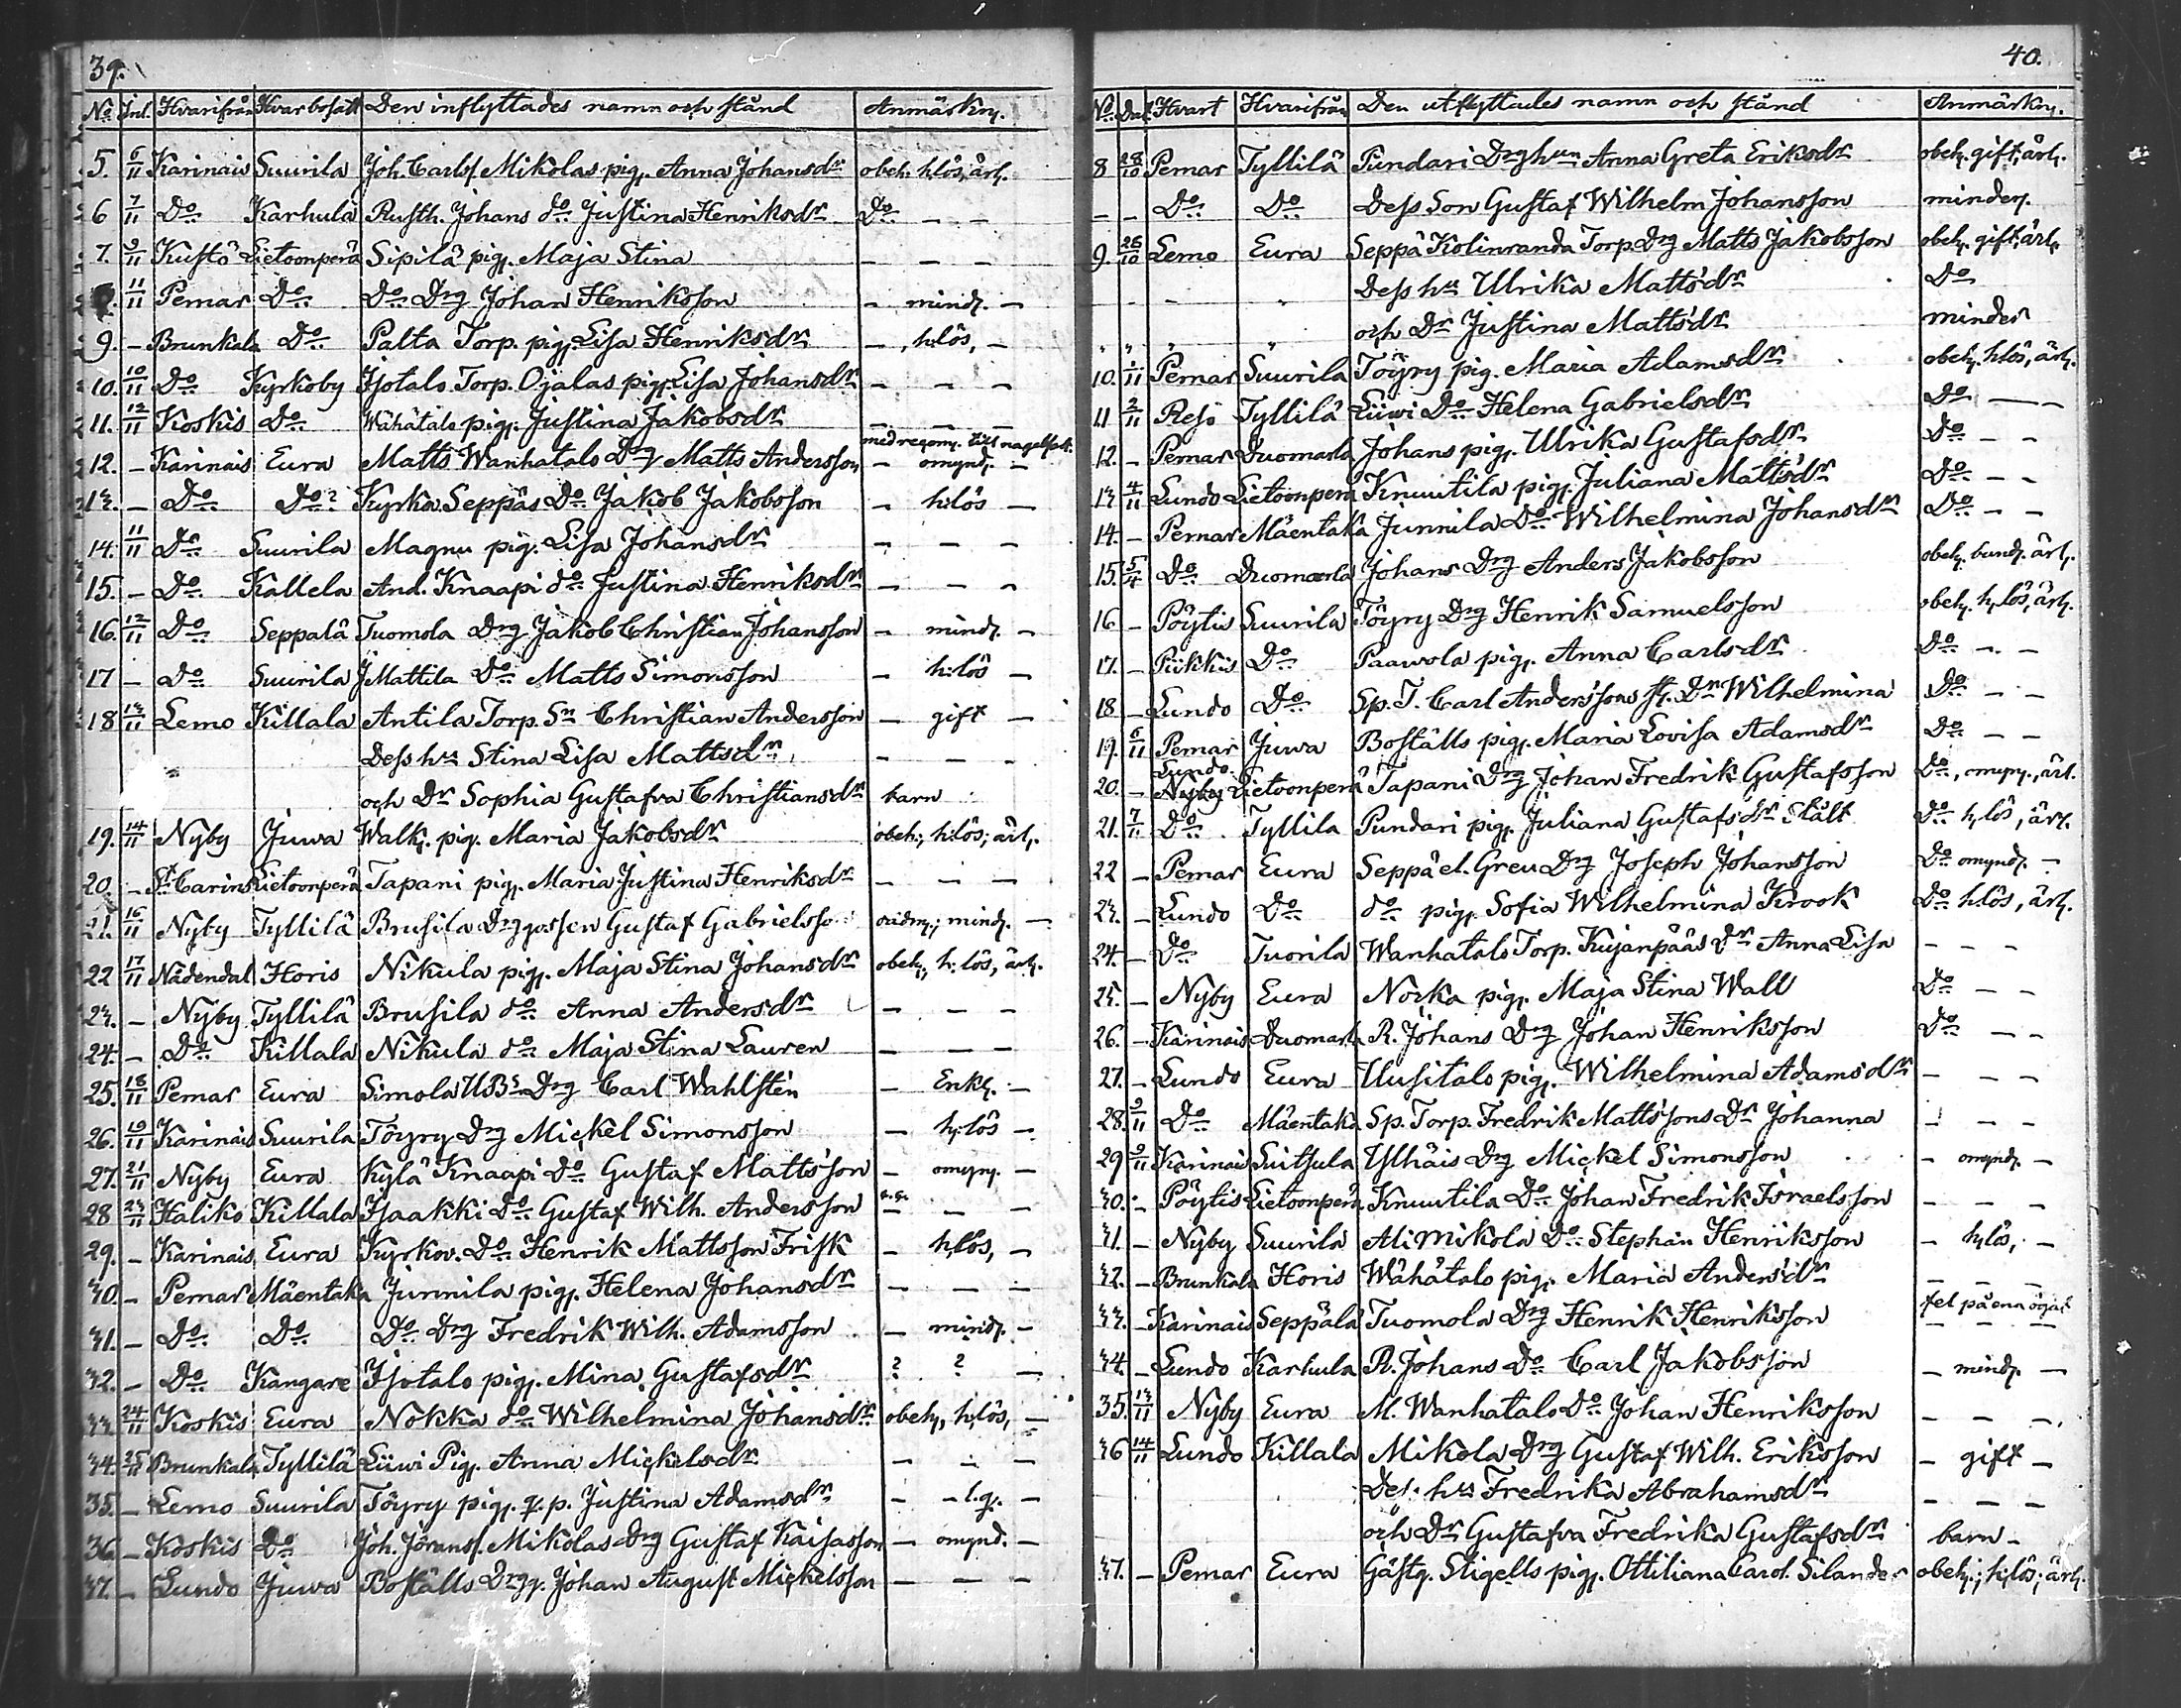 39.
No Inl. Hvarifrån Hvar bosatt Den inflyttades namn och stånd Anmärkn.
5. 6/11 Karinais Suurila Joh. Carlss. Mikolas pig. Anna Johansdr obeh. h:lös, ärl.
6 7/11 Do Karhula Rusth. Johans do Justina Henriksdr Do – –
7. 9/11 Kustö Lietoonperä Sipilä pig. Maja Stina – – –
11/11 Pemar Do Do Drg Johan Henriksson – mindr. –
9. – Brunkala Do Palta Torp. pig. Lisa Henriksdr –, h:lös, –
10. 10/11 Do Kyrkoby Isotalo Torp. Ojalas pig. Lisa Johansdr – – –
11. 12/11 Koskis Do Wähätalo pig. Justina Jakobsdr – – –
med regomg. till nagelfast.
12. – Karinais Eura Matts Wanhatalo Drg Matts Andersson – omynd. –
13. – Do Do? Kyrkov. Seppäs Do Jakob Jakobsson – h:lös –
14. 11/11 Do Suurila Magnu pig. Lisa Johansdr – – –
15. – Do Kallela And. Knaapi do Justina Henriksdr – – –
16. 12/11 Do Seppälä Tuomola Drg Jakob Christian Johansson – mindr. –
17 – Do Suurila J Mattila Do Matts Simonsson – h:lös –
18 13/11 Lemo Killala Antila Torp. Sn Christian Andersson – gift –
Dess hu Stina Lisa Mattsdr – – –
och Dr Sophia Gustafva Christiansdr barn
19. 14/11 Nyby Juwa Walk. pig. Maria Jakobsdr obeh.; h:lös; ärl.
20. – St Carins Lietoonperä Tapani pig. Maria Justina Henriksdr – – –
21. 16/11 Nyby Tyllilä Brusila Drggossen Gustaf Gabrielsso mindr. –
22 17/11 Nådendal Horis Nikula pig. Maja Stina Johansdr obeh., h:lös, ärl.
23. – Nyby Tyllilä Brusila do Anna Andersdr – – –
24. – Do Killala Nikula do Maja Stina Lauren – – –
25. 18/11 Pemar Eura Simola UBs Drg Carl Wahlstén – Enkl. –
26. 19/11 Karinais Suurila Töyry Drg Mickel Simonsson – h:lös –
27. 21/11 Nyby Eura Kylä Knaapi Do Gustaf Mattsson – omyn. –
28 23/11 Haliko Killala Isaakki Do Gustaf Wilh. Andersson – – –
29. – Karinais Eura Kyrkov. Do Henrik Mattsson Frisk – h:lös, –
30. – Pemar Mäentaka Junnila pig. Helena Johansdr – – –
31. – Do Do Do Drg Fredrik Wilh. Adamsson – mindr. –
32. – Do Kangare Isotalo pig. Mina Gustafsdr ? ? –
33 24/11 Koskis Eura Nokka do Wilhelmina Johansdr obeh, h:lös, –
34. 25/11 Brunkala Tyllilä Liiwi Pig. Anna Mickelsdr – – –
35. – Lemo Suurila Töyry pig. q.p. Justina Adamsdr – – l.g. –
36. – Koskis Do Joh. Jöranss. Mikolas Drg Gustaf Kaisasson – omynd. –
37. – Lundo Juwa Boställs Drg. Johan August Mickelsson – – –
40.
No Dat. Hvart Hvarifrån Den utflyttades namn och stånd Anmärkn.
8 28/10 Pemar Tyllilä Pundari Drghun Anna Greta Eriksdr obeh. gift, ärl.
– – Do Do Dess Son Gustaf Wilhelm Johansson minder.
9. 26/10 Lemo Eura Seppä Kolinranda Torp. Drg Matts Jakobsson obeh. gift, ärl.
Dess hu Ulrika Mattsdr Do
och Dr Justina Mattsdr minder
10. 1/11 Pemar Suurila Töyry pig. Maria Adamsdr obeh. h:lös, ärl.
11 2/11 Reso Tyllilä Liiwi Do Helena Gabrielsdr Do – –
12. – Pemar Duomarla Johans pig. Ulrika Gustafsdr Do – –
13 4/11 Lundo Lietoonperä Knuutila pig. Juliana Mattsdr Do – –
14. – Pemar Mäentaka Junnila Do Wilhelmina Johansdr Do – –
15. 5/4 Do Duomarla Johans Drg Anders Jakobsson obeh. bund. ärl.
16 – Pöytis Suurila Töyry Drg Henrik Samuelsson obeh. h:lös, ärl.
17. – Piikkis Do Paawola pig. Anna Carlsdr Do – –
18 – Lundo Do Sp. T. Carl Anderssons st. Dr Wilhelmina Do – –
19. 6/11 Pemar Juwa Boställs pig. Maria Lovisa Adamsdr Do – –
20. – Lundo Nyby Lietoonperä Tapani Drg Johan Fredrik Gustafsson Do, omyn., ärl.
21. 7/11 Do Tyllila Pundari pig. Juliana Gustafsdr Stålt Do h:lös, ärl.
22 – Pemar Eura Seppä el. Greu Drg Joseph Johansson Do omynd. –
23. – Lundo Do do pig. Sofia Wilhelmina Krook Do h:lös, ärl.
24. – Do Tuorila Wanhatalo Torp. Kujanpääs Dr Anna Lisa – – –
25. – Nyby Eura Norka pig. Maja Stina Wall Do – –
26. – Karinais Duomarla R. Johans Drg Johan Henriksson Do – –
27. – Lundo Eura Uusitalo pig. Wilhelmina Adamsdr – – –
28. 9/11 Do Mäentaka Sp. Torp. Fredrik Mattssons Dr Johanna – – –
29 9/11 Karinais Suitsula Ylhäis Drg Mickel Simonsson – omynd. –
30. – Pöytis Lietoonperä Knuutila Do Johan Fredrik Israelsson – – –
31. – Nyby Suurila Ali Mikola Do Stephan Henriksson – h:lös, –
32. – Brunkala Horis Wähätalo pig. Maria Andersdr – – –
33. – Karinais Seppälä Tuomola Drg Henrik Henriksson fel på ena ögat
34. – Lundo Karhula R. Johans Do Carl Jakobsson – mindr. –
35. 13/11 Nyby Eura M. Wanhatalo Do Johan Henriksson – – –
36 14/11 Lundo Killala Mikola Drg Gustaf Wilh. Eriksson – gift –
Des. hus Fredrika Abrahamsdr – – –
och Dr Gustafva Fredrika Gustafsdr barn –
37. – Pemar Eura Gästg. Stigells pig. Ottiliana Carol. Silander obeh.; h:lös; ärl.